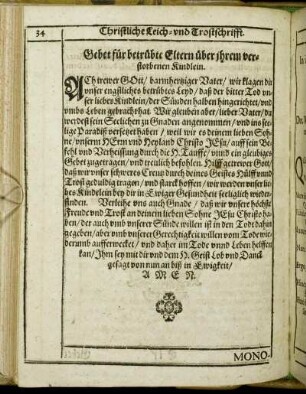 34
Christliche Leich- vnd Trostschrifft.
Gebet für betrübte Eltern über ihrem ver-
storbenen Kindlein.
ACh trewer GOtt/ barmhertziger Vater/ wir klagen dir
vnser engstliches betrübtes Leyd/ daß der bitter Tod vn-
ser liebes Kindlein/ der Sünden halben hingerichtet/ vnd
vmbs Leben gebracht hat. Wir glauben aber/ lieber Vater/ du
werdest sein Seelichen zu Gnaden angenommen/ vnd ins se-
lige Paradiß versetzet haben/ weil wir es deinem lieben Soh-
ne/ vnserm HErrn vnd Heyland Christo JEsu/ auff sein Be-
fehl vnd Verheissung durch die H. Tauffe/ vnnd ein glaubiges
Gebet zugetragen/ vnd trewlich befohlen. Hilff getrewer Gott/
daß wir vnser schweres Creutz durch deines Geistes Hülff vnnd
Trost geduldig tragen/ vnd starck hoffen/ wir werden vnser lie-
bes Kindelein bey dir in Ewiger Gesundheit seliglich wieder-
finden. Verleihe vns auch Gnade/ daß wir vnsere höchste
Frewde vnd Trost an deinem lieben Sohne JEsu Christo ha-
ben/ der auch vmb vnserer Sünde willen ist in den Todt dahin
gegeben/ aber vmb vnserer Gerechtigkeit willen vom Tode wie-
derumb aufferwecket/ vnd daher im Tode vnnd Leben helffen
kan/ Ihm sey mit dir vnd dem H. Geist Lob vnd Danck
gesagt von nun an biß in Ewigkeit/
A M E N.
MONO-